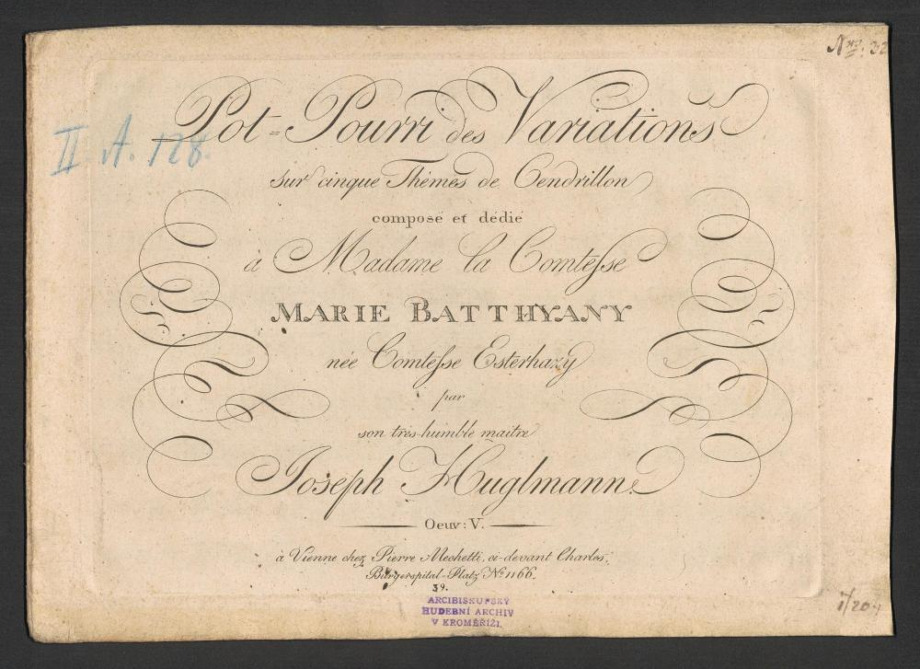 Nro. 32
II A. 128.
Pot=Pourri des Variations
sur cinque Thêmes de Cendrillon
composé et dédié
à Madame la Comtesse
MARIE BATTHYANY
née Comtesse Esterhazy
par
son très-humble maître
Joseph Huglmann.
Oeuv: V.
à Vienne chez Pierre Mechetti, ci-devant Charles,
Bürgerspital-Platz No. 1166.
39.
ARCIBISKUPSKÝ
HUDEBNÍ ARCHIV
V KROMĚŘÍŽI.